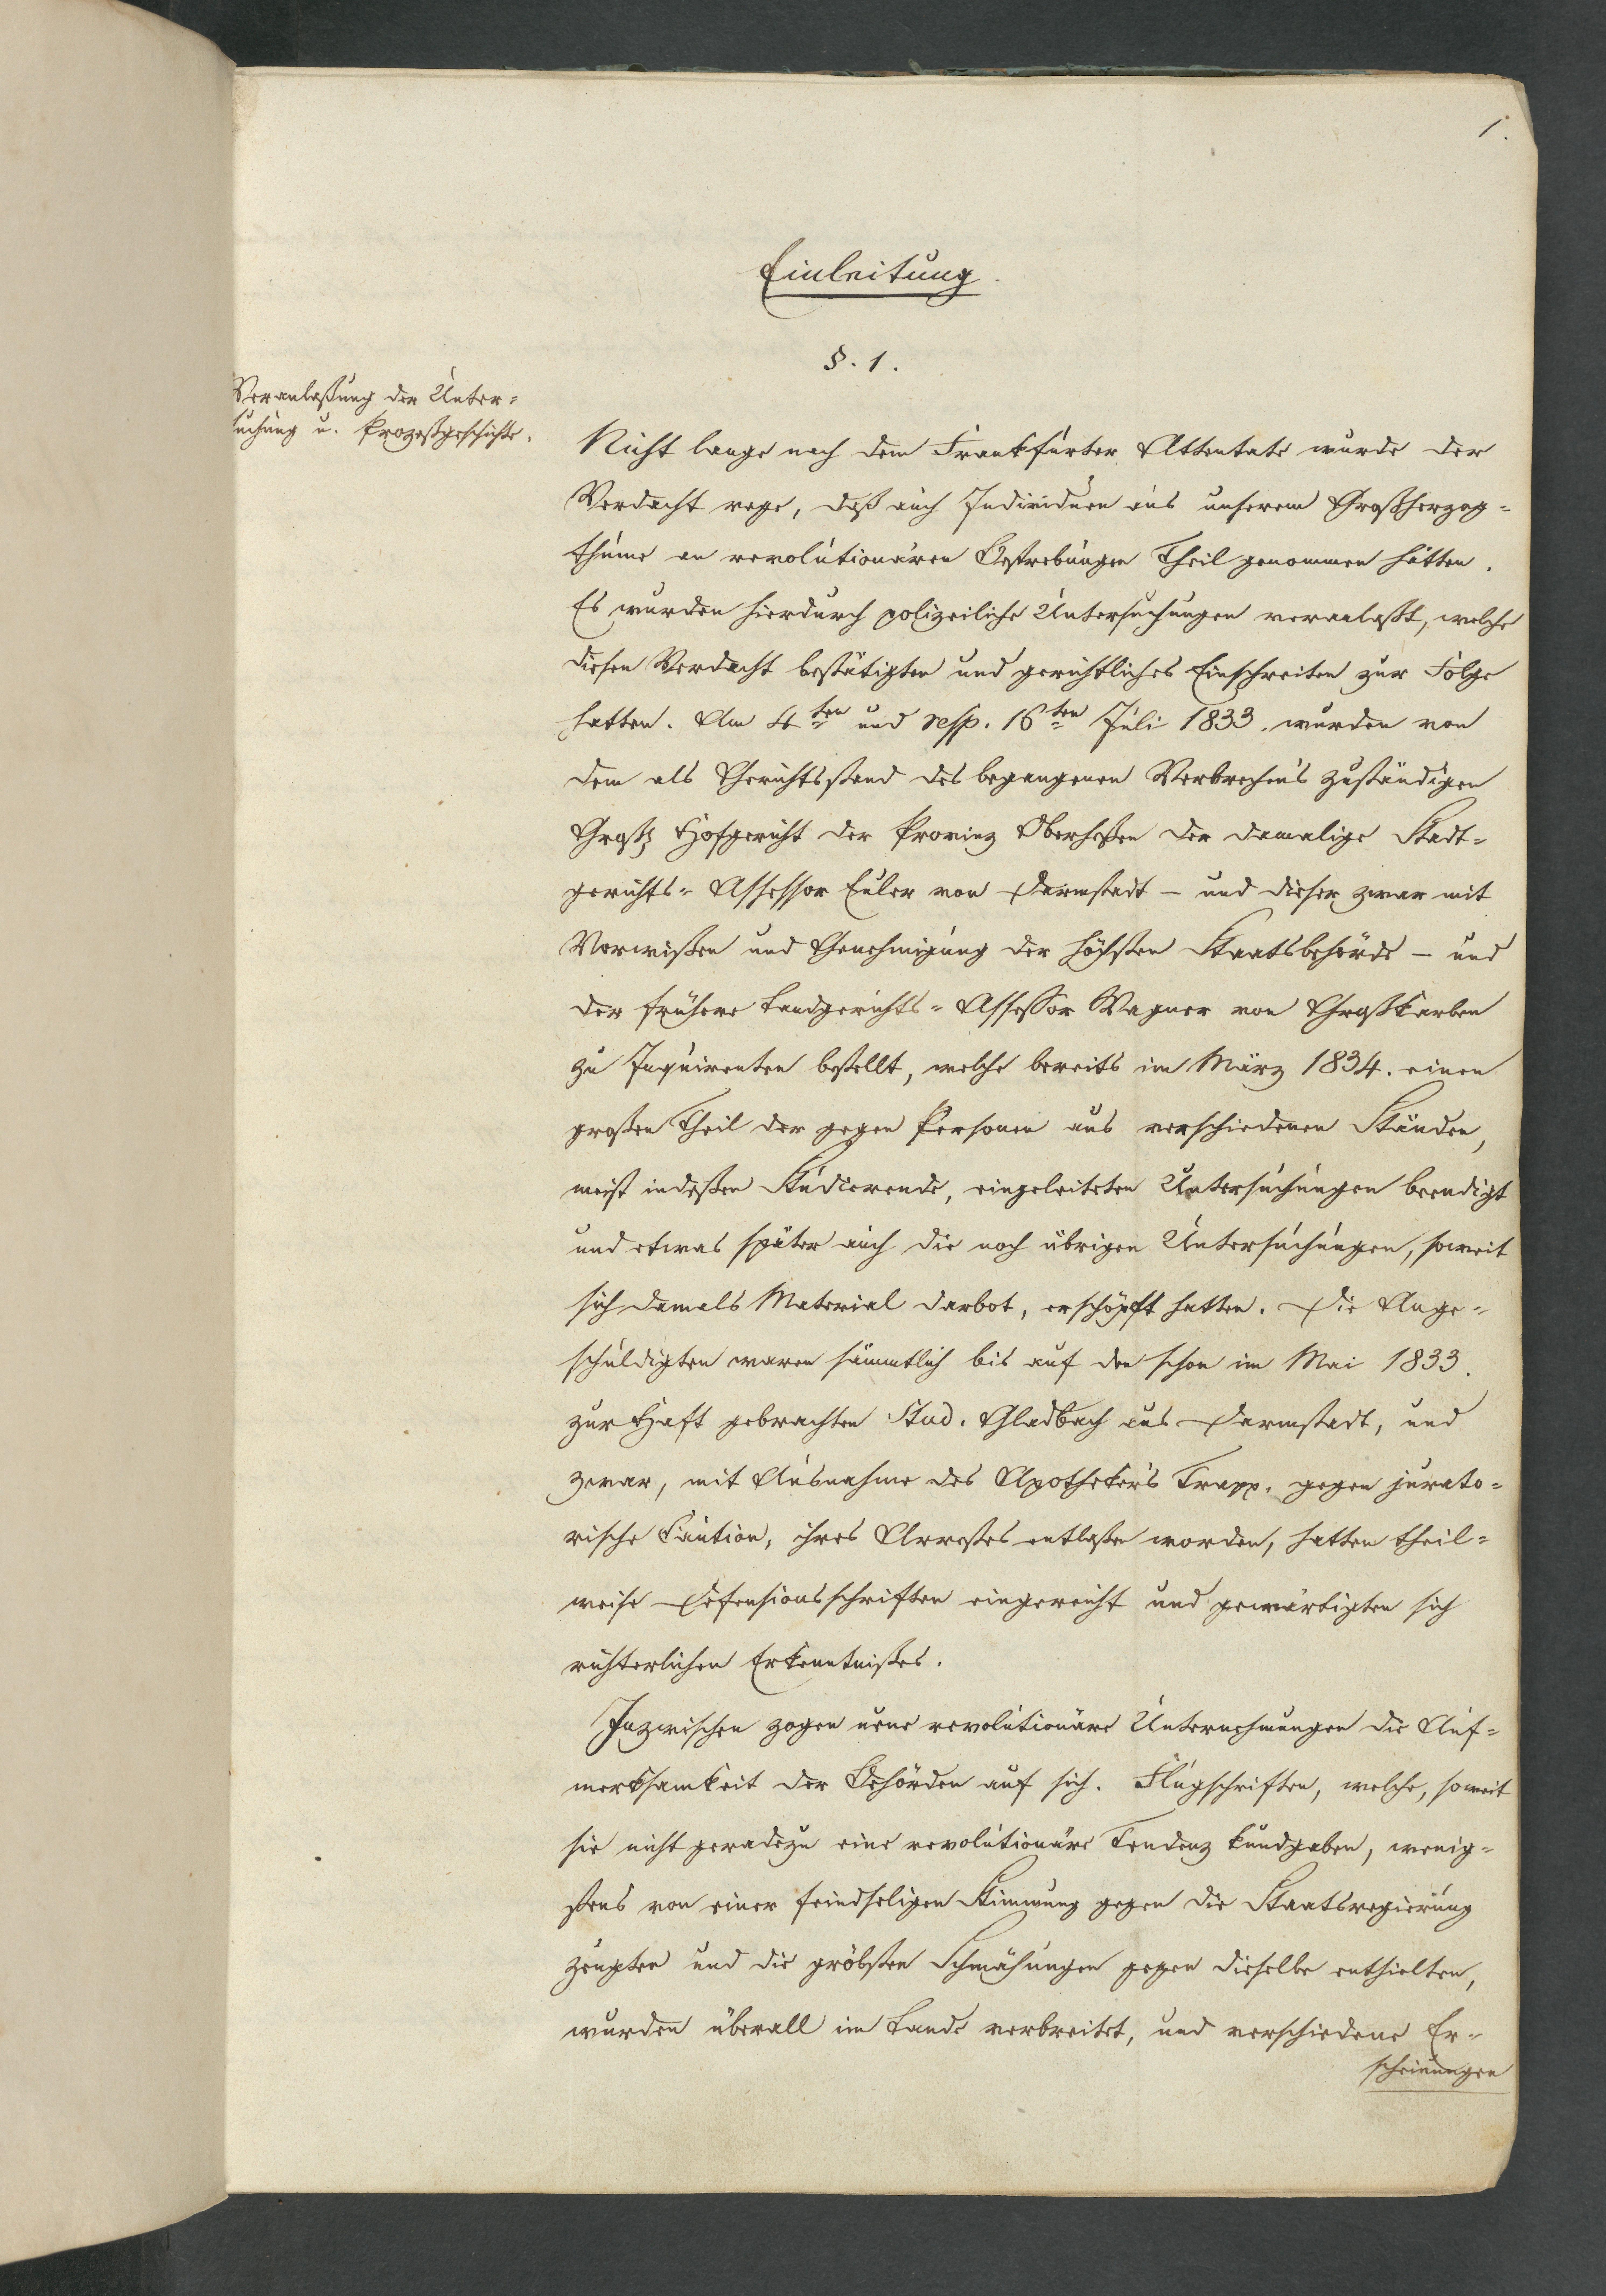 1.
Einleitung.
§. 1.
Veranlaßung der Unter-
suchung u. Prozeßgeschichte.
Nicht lange nach dem Frankfurter Attentate wurde der
Verdacht rege, daß auch Individuen aus unserem Großherzog-
thume an revolutionären Bestrebungen Theil genommen hätten.
Es wurden hierdurch polizeiliche Untersuchungen veranlaßt, welche
diesen Verdacht bestätigten und gerichtliches Einschreiten zur Folge
hatten. Am 4ten und resp. 16ten Juli 1833. wurden von
dem als Gerichtsstand des begangenen Verbrechens zuständigen
Großh Hofgericht der Provinz Oberheßen der damalige Stadt-
gerichts-Assessor Euler von Darmstadt – und dieser zwar mit
Vorwißen und Genehmigung der höchsten Staatsbehörde – und
der frühere Landgerichts-Assessor Wagner von Großkarben
zu Inquirenten bestellt, welche bereits im März 1834. einen
großen Theil der gegen Personen aus verschiedenen Ständen,
meist indeßen Studierende, eingeleiteten Untersuchungen beendigt
und etwas später auch die noch übrigen Untersuchungen, soweit
sich damals Material darbot, erschöpft hatten. Die Ange-
schuldigten waren sämmtlich bis auf den schon im Mai 1833.
zur Haft gebrachten Stud. Gladbach aus Darmstadt, und
zwar, mit Ausnahme des Apotheker's Trapp, gegen jurato-
rische Caution, ihres Arrestes entlaßen worden, hatten theil-
weise Defensionsschriften eingereicht und gewärtigten sich
richterlichen Erkenntnißes.
Inzwischen zogen neue revolutionäre Unternehmungen die Auf-
merksamkeit der Behörden auf sich. Flugschriften, welche, soweit
sie nicht geradezu eine revolutionäre Tendenz kundgaben, wenig-
stens von einer feindseligen Stimmung gegen die Staatsregierung
zeugten und die gröbsten Schmähungen gegen dieselbe enthielten,
wurden überall im Lande verbreitet, und verschiedene Er-
scheinungen